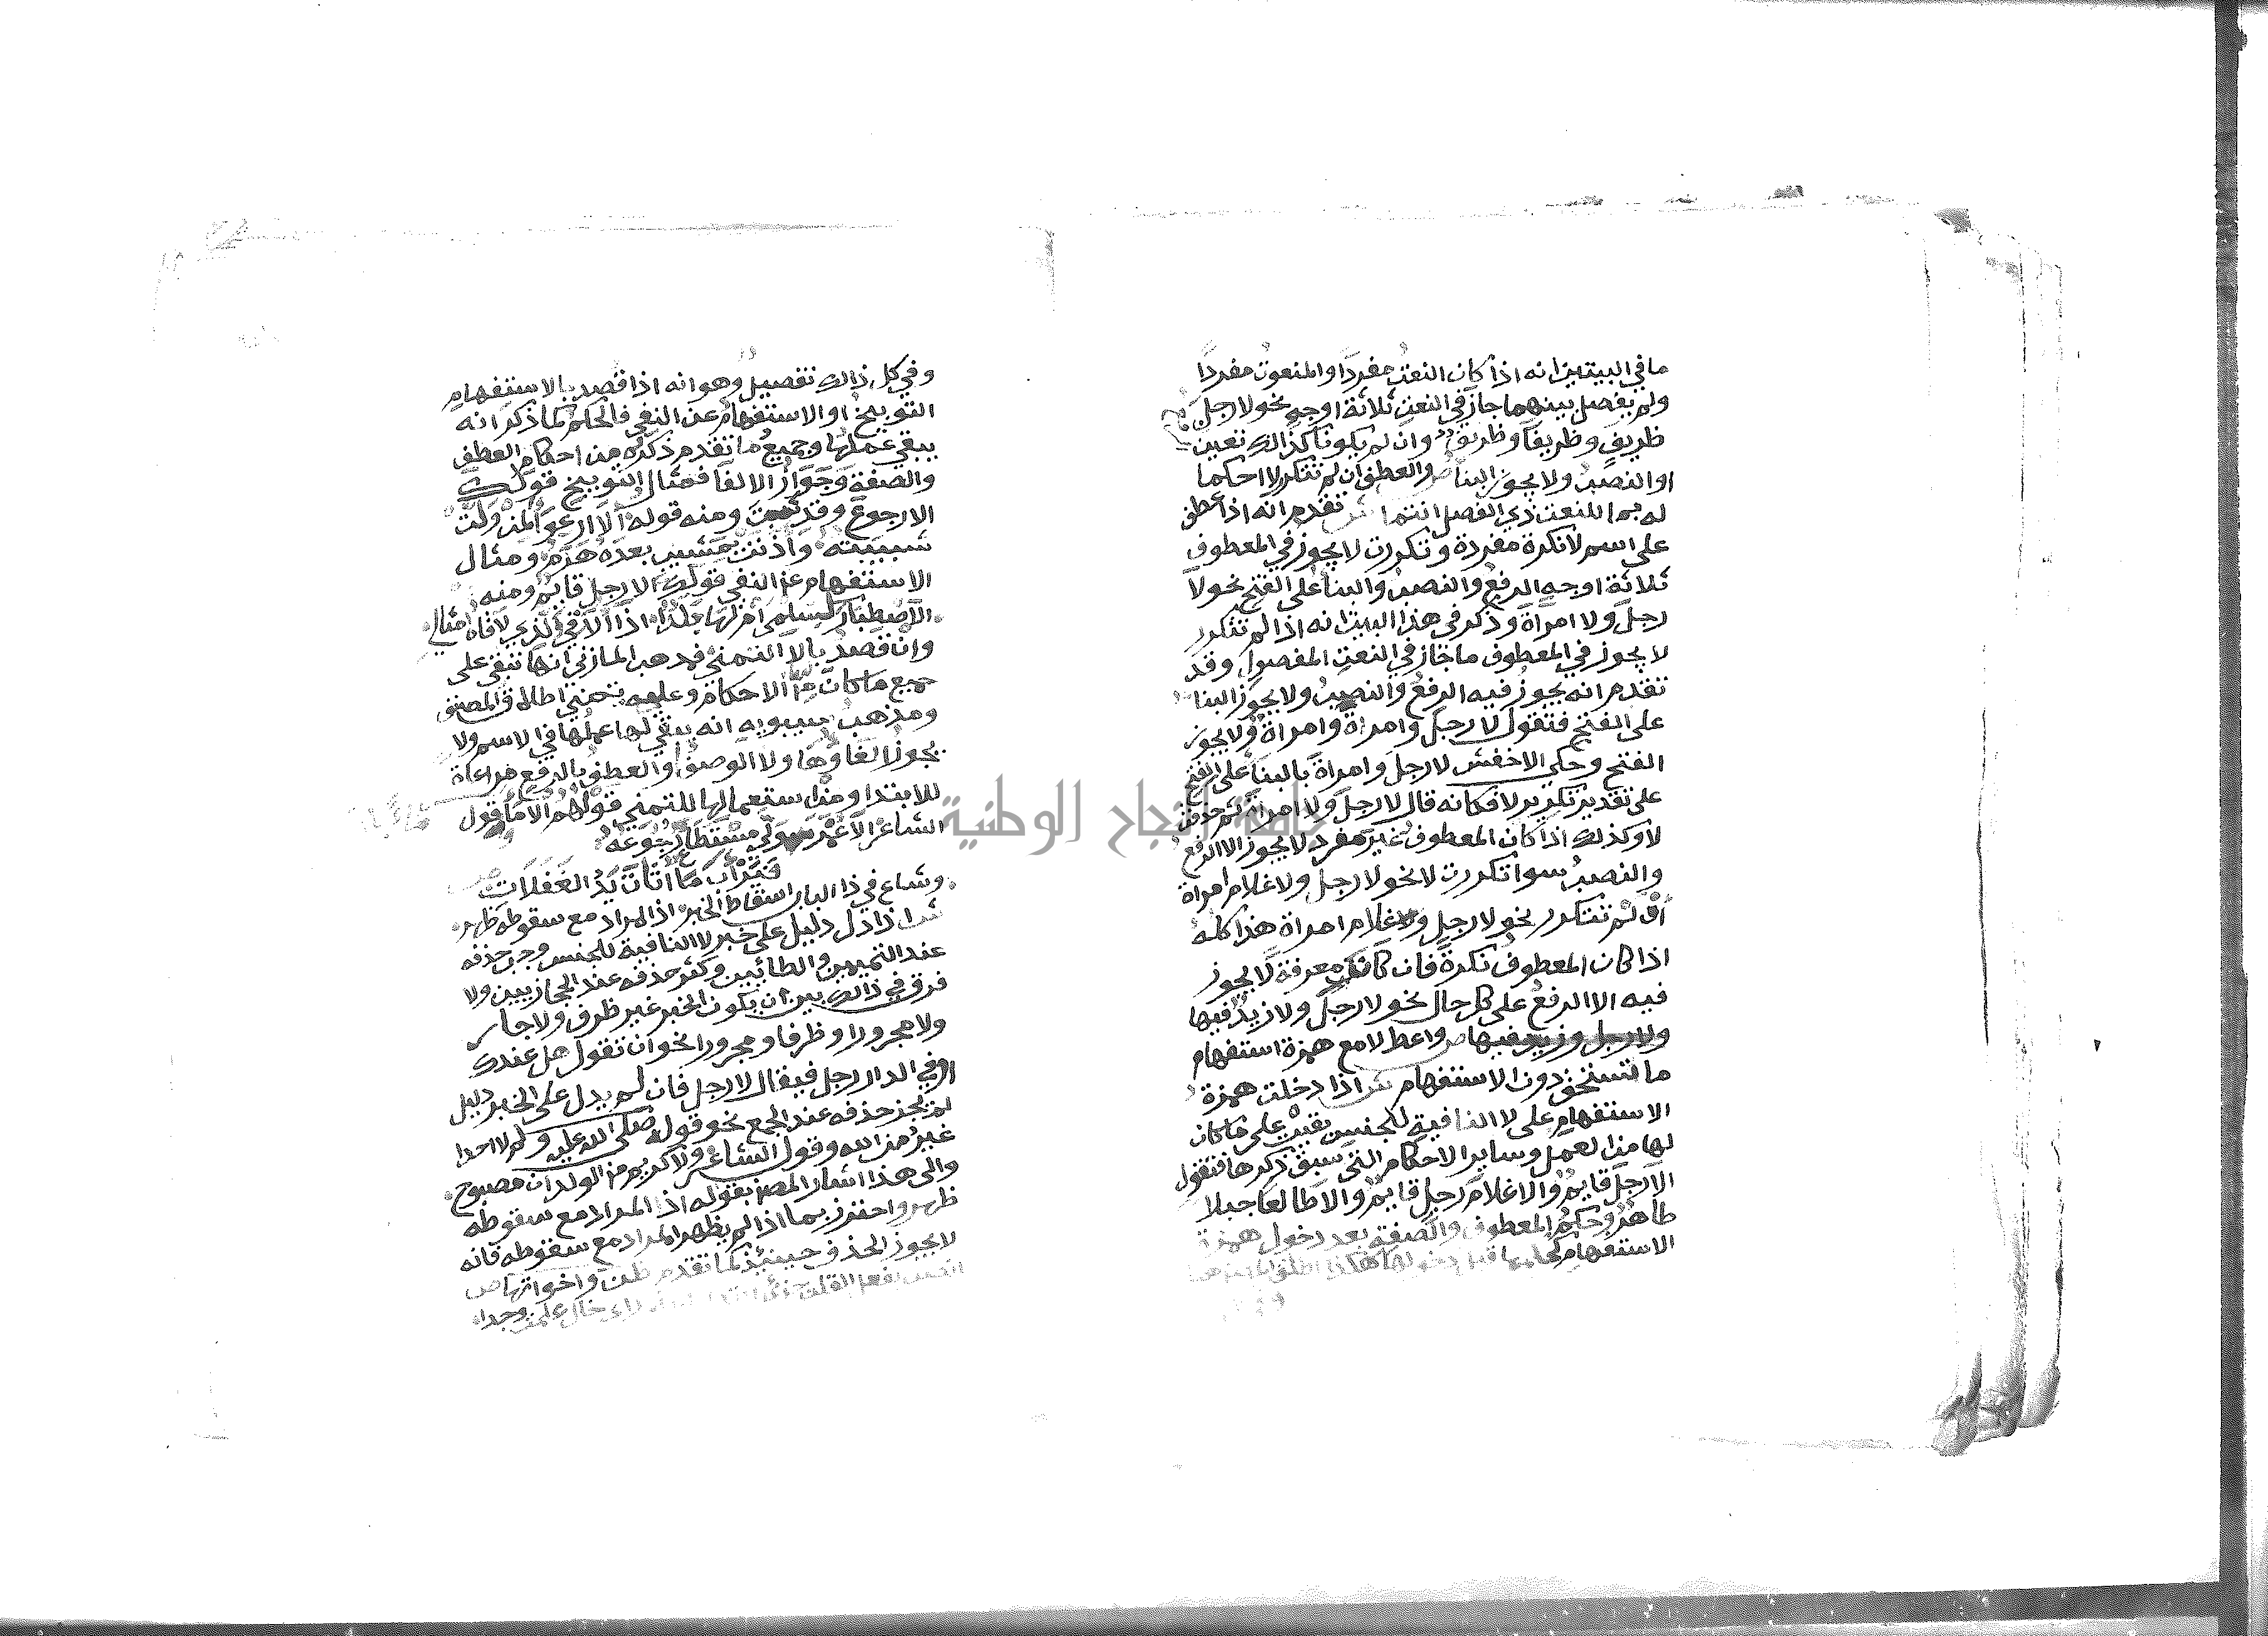 ما في البيتين انه اذا كان النعت مفردا والمنعوت مفردا
ولم يفصل بينهما جاز في النعت ثلاثة اوجه نحو لا رجل
ظريف وظريفا وظريف وان لم يكونا كذالك تعين
او النصب ولا يجوز البنا ص والعطف ان لم تتكرر لا احكما
له بما للنعت ذي الفصل انتما ش تقدم انه اذا عطف
على اسم لا نكرة مفردة وتكررت لا يجوز في المعطوف
ثلاثة اوجه الرفع والنصب والبنا على الفتح نحو لا
رجل ولا امراة وذكر في هذا البيت انه اذا لم تتكرر
لا يجوز في المعطوف ما جاز في النعت المفصول وقد
تقدم انه يجوز فيه الرفع والنصب ولا يجوز البنا
على الفتح فتقول لا رجل وامراة وامراة ولا يجوز
الفتح وحكي الاخفش لا رجل وامراة بالبنا على الفتح
على تقدير تكرير لا فكانه قال لا رجل ولا امراة ثم حذف
لا وكذلك اذا كان المعطوف غير مفرد لا يجوز الا الرفع
والنصب سوا تكررت لا نحو لا رجل ولا غلام امراة
او لم تتكرر نحو لا رجل وغلام امراة هذا كله
اذا كان المعطوف نكرة فان كان معرفة لا يجوز
فيه الا الرفع على كل حال نحو لا رجل ولا زيد فيها
ولا رجل وزيد فيها ص واعط لا مع همزة استفهام
ما تستحق دون الاستفهام ش اذا دخلت همزة
الاستفهام على لا النافية للجنس بقيت على ما كان
لها من العمل وساير الاحكام التي سبق ذكرها فتقول
الا رجل قايم والا غلام رجل قايم والا طالعا جبلا
ظاهر وحكم المعطوف والصفة بعد دخول همزة
الاستفهام كحكمها قبل دخولها هكذا اطلق
وفي كل ذالك تفصيل وهو انه اذا قصد بالاستفهام
التوبيخ او الاستفهام عن النفي فالحكم كما ذكر انه
يبقي عملها وجميع ما تقدم ذكره من احكام العطف
والصفة وجواز الالغا فمثال التوبيخ قولك
الا رجوع وقد شبت ومنه قوله الا ارعوا لمن ولت
شبيبته واذنت بمشيب بعده هرم ومثال
الاستفهام عن النفي قولك الا رجل قايم ومنه
الا اصطبار لسلمى ام لها جلد اذا الاقي الذي لاقاه امثالي
وان قصد بالا التمني فمذهب المازني انها تبقى على
جميع ما كان من الاحكام وعليه يتمشى اطلاق المصنف
ومذهب سيبويه انه يبقي لها عملها في الاسم ولا
يجوز الغاؤها ولا الوصف او العطف بالرفع مراعاة
للابتدا ومن استعمالها للتمني قولهم الا ما
الشاعر الا عمر ولى مستطاع رجوعه
فيرأب ما اثات يد الغفلات
وشاع في ذا الباب اسقاط الخبر اذا المراد مع سقوطه ظهر
ش اذا دل دليل على خبر لا النافية للجنس وجب حذفه
عند التميميين والطائيين وكثر حذفه عند الحجازيين ولا
فرق في ذالك بين ان يكون الخبر غير ظرف ولا جار
ولا مجرور او ظرفا ومجرورا نحو ان تقول هل عندك
او في الدار رجل فيقال لا رجل فان لم يدل على الخبر دليل
لم يجز حذفه عند الجميع نحو قوله صلى الله عليه وسلم لا احد
غير من الله وقول الشاعر ولا كريم من الولدان مصبوح
والى هذا اشار المصنف بقوله اذا المراد مع سقوطه
ظهر واحترز بهما اذا لم يظهر المراد مع سقوطه فانه
لا يجوز الحذف حينئذ كما تقدم ظن واخواتها ص
انصب بفعل القلب جزأي ابتدا خال علمت وجدا
جامعة النجاح الوطنية